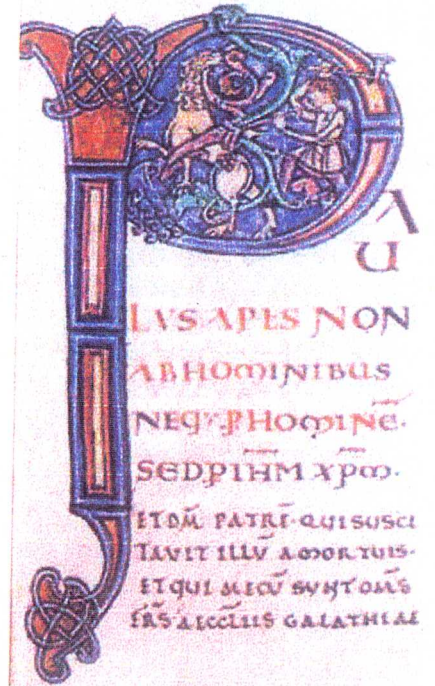 P
A
U
LVS APLS NON
AB HOMINIBUS
NEQ· P HOMINĒ·
SED P IHM XPM·
ET DM̄ PATRĒ· QUI SUSCI
TAVIT ILLṼ A MORTUIS·
ET QUI MECṼ SVNT OMS
FRS AECCLIIS GALATHIAE